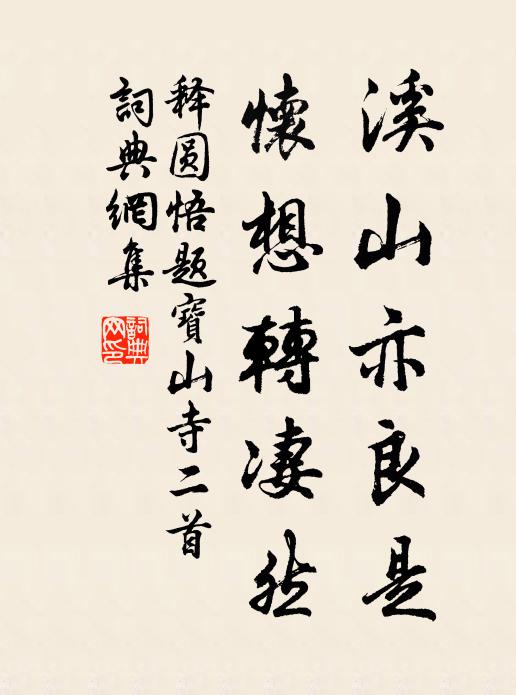 溪山亦良是
懷想轉淒然
释圆悟题寶山寺二首
詞典網集
詞典網印